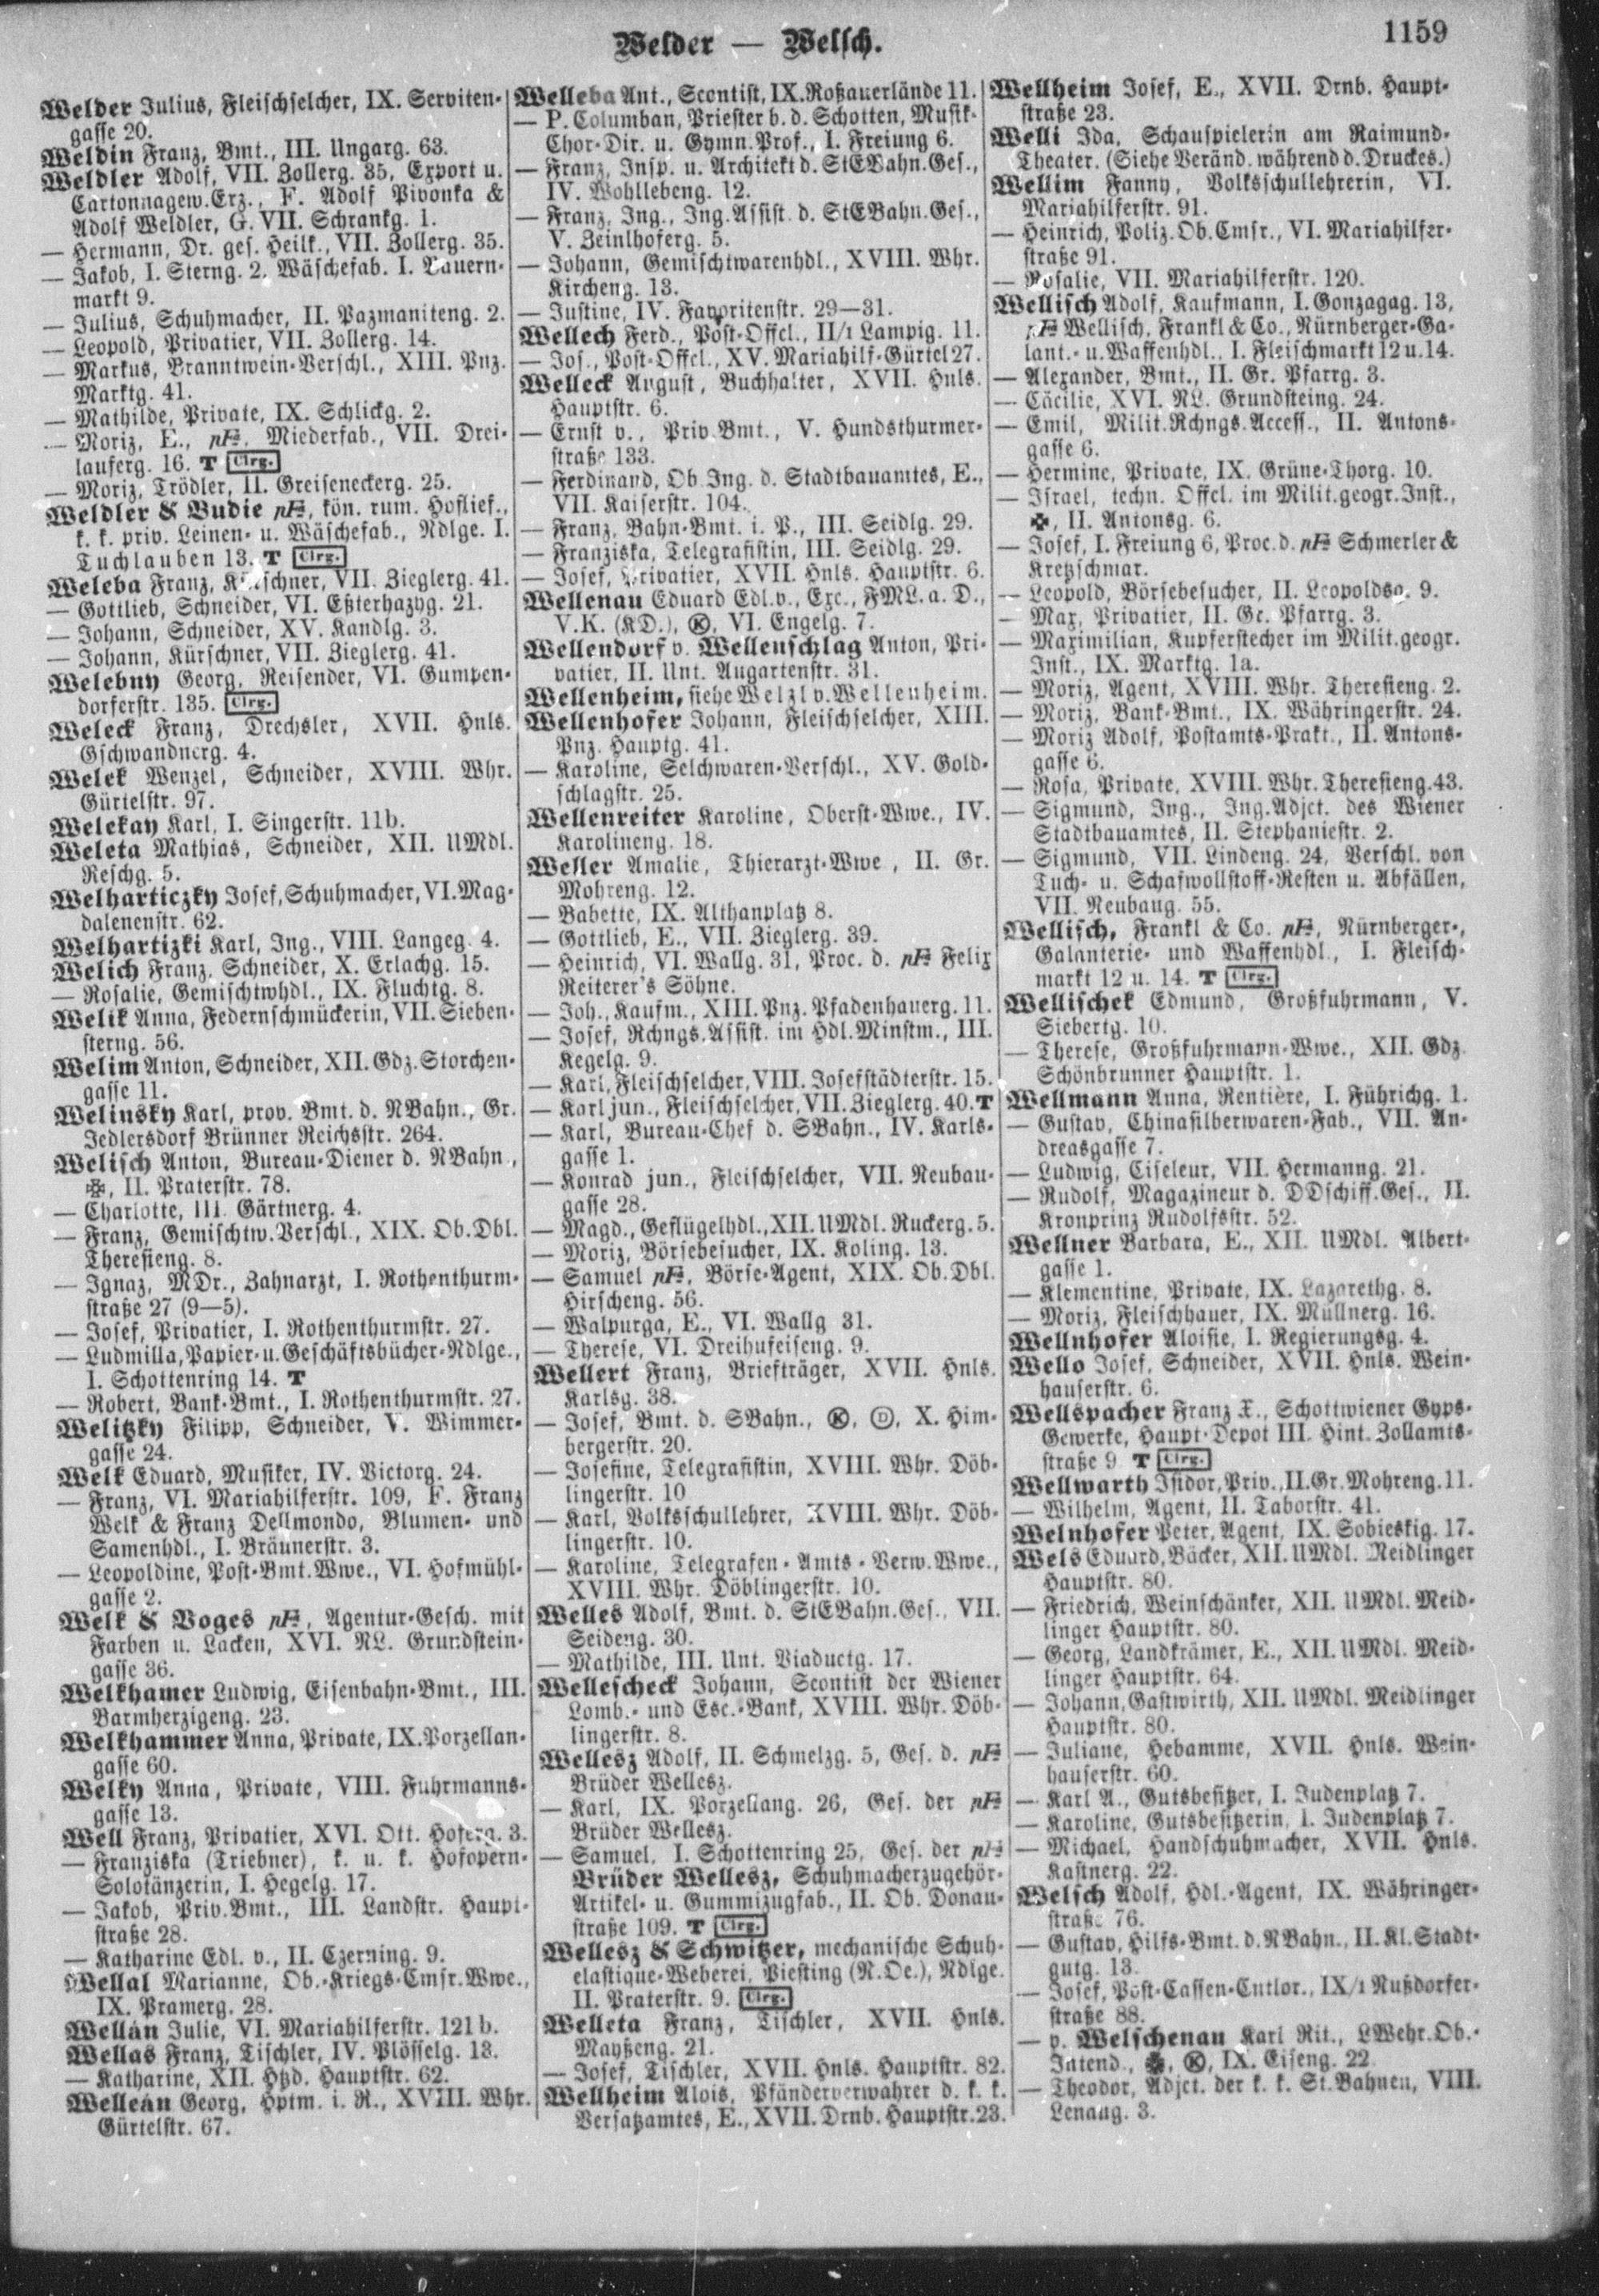 Welder — Welsch.
1159
Welder Julius, Fleischselcher, IX. Serviten-
gasse 20.
Weldin Franz, Bmt., III. Ungarg. 63.
Weldler Adolf, VII. Zollerg. 35, Export u.
Cartonnagew.Erz., F. Adolf Pivonka &
Adolf Weldler, G. VII. Schrankg. 1.
— Hermann, Dr. ges. Heilk., VII. Zollerg. 35.
— Jakob, I. Sterng. 2. Wäschefab. I. Bauern-
markt 9.
— Julius, Schuhmacher, II. Pazmaniteng. 2.
— Leopold, Privatier, VII. Zollerg. 14.
— Markus, Branntwein-Verschl., XIII. Pnz.
Marktg. 41.
— Mathilde, Private, IX. Schlickg. 2.
— Moriz, E., pF, Miederfab., VII. Drei-
lauferg. 16. T Clrg.
— Moriz, Trödler, II. Greiseneckerg. 25.
Weldler & Budie pF, kön. rum. Hoflief.,
k. k. priv. Leinen- u. Wäschefab., Ndlge. I.
Tuchlauben 13. T Clrg.
Weleba Franz, Kürschner, VII. Zieglerg. 41.
— Gottlieb, Schneider, VI. Eßterhazyg. 21.
— Johann, Schneider, XV. Kandlg. 3.
— Johann, Kürschner, VII. Zieglerg. 41.
Welebny Georg, Reisender, VI. Gumpen-
dorferstr. 135. Clrg.
Weleck Franz, Drechsler, XVII. Hnls.
Gschwandnerg. 4.
Welek Wenzel, Schneider, XVIII. Whr.
Gürtelstr. 97.
Welekay Karl, I. Singerstr. 11b.
Weleta Mathias, Schneider, XII. UMdl.
Reschg. 5.
Welharticzky Josef, Schuhmacher, VI. Mag-
dalenenstr. 62.
Welhartizki Karl, Ing., VIII. Langeg. 4.
Welich Franz, Schneider, X. Erlachg. 15.
— Rosalie, Gemischtwhdl., IX. Fluchtg. 8.
Welik Anna, Federnschmückerin, VII. Sieben-
sterng. 56.
Welim Anton, Schneider, XII. Gdz. Storchen-
gasse 11.
Welinsky Karl, prov. Bmt. d. NBahn., Gr.
Jedlersdorf Brünner Reichsstr. 264.
Welisch Anton, Bureau-Diener d. NBahn.,
✠, II. Praterstr. 78.
— Charlotte, III. Gärtnerg. 4.
— Franz, Gemischtw.Verschl., XIX. Ob.Dbl.
Theresieng. 8.
— Ignaz, MDr., Zahnarzt, I. Rothenthurm-
straße 27 (9—5).
— Josef, Privatier, I. Rothenthurmstr. 27.
— Ludmilla, Papier- u. Geschäftsbücher-Ndlge.,
I. Schottenring 14. T
— Robert, Bank-Bmt., I. Rothenthurmstr. 27.
Welitzky Filipp, Schneider, V. Wimmer-
gasse 24.
Welk Eduard, Musiker, IV. Victorg. 24.
— Franz, VI. Mariahilferstr. 109, F. Franz
Welk & Franz Dellmondo, Blumen- und
Samenhdl., I. Bräunerstr. 3.
— Leopoldine, Post-Bmt.Wwe., VI. Hofmühl-
gasse 2.
Welk & Voges pF, Agentur-Gesch. mit
Farben u. Lacken, XVI. NL. Grundstein-
gasse 36.
Welkhamer Ludwig, Eisenbahn-Bmt., III.
Barmherzigeng. 23.
Welkhammer Anna, Private, IX. Porzellan-
gasse 60.
Welky Anna, Private, VIII. Fuhrmanns-
gasse 13.
Well Franz, Privatier, XVI. Ott. Hoferg. 3.
— Franziska (Triebner), k. u. k. Hofopern-
Solotänzerin, I. Hegelg. 17.
— Jakob, Priv.Bmt., III. Landstr. Haupt-
straße 28.
— Katharine Edl. v., II. Czerning. 9.
Wellal Marianne, Ob.-Kriegs-Cmsr.Wwe.,
IX. Pramerg. 28.
Wellán Julie, VI. Mariahilferstr. 121b.
Wellas Franz, Tischler, IV. Plösselg. 13.
— Katharine, XII. Htzd. Hauptstr. 62.
Welleán Georg, Hptm. i. R., XVIII. Whr.
Gürtelstr. 67.
Welleba Ant., Scontist, IX. Roßauerlände 11.
— P. Columban, Priester b. d. Schotten, Musik-
Chor-Dir. u. Gymn.Prof., I. Freiung 6.
— Franz, Insp. u. Architekt d. StEBahn.Ges.,
IV. Wohllebeng. 12.
— Franz, Ing., Ing.Assist. d. StEBahn.Ges.,
V. Zeinlhoferg. 5.
— Johann, Gemischtwarenhdl., XVIII. Whr.
Kircheng. 13.
— Justine, IV. Favoritenstr. 29—31.
Wellech Ferd., Post-Offcl., II/1 Lampig. 11.
— Jos., Post-Offcl., XV. Mariahilf-Gürtel 27.
Welleck August, Buchhalter, XVII. Hnls.
Hauptstr. 6.
— Ernst v., Priv.Bmt., V. Hundsthurmer-
straße 133.
— Ferdinand, Ob.Ing. d. Stadtbauamtes, E.,
VII. Kaiserstr. 104.
— Franz, Bahn-Bmt. i. P., III. Seidlg. 29.
— Franziska, Telegrafistin, III. Seidlg. 29.
— Josef, Privatier, XVII. Hnls. Hauptstr. 6.
Wellenau Eduard Edl.v., Exc., FML. a. D.,
V.K. (KD.), Ⓚ, VI. Engelg. 7.
Wellendorf v. Wellenschlag Anton, Pri-
vatier, II. Unt. Augartenstr. 31.
Wellenheim, siehe Welzl v. Wellenheim.
Wellenhofer Johann, Fleischselcher, XIII.
Pnz. Hauptg. 41.
— Karoline, Selchwaren-Verschl., XV. Gold-
schlagstr. 25.
Wellenreiter Karoline, Oberst-Wwe., IV.
Karolineng. 18.
Weller Amalie, Thierarzt-Wwe, II. Gr.
Mohreng. 12.
— Babette, IX. Althanplatz 8.
— Gottlieb, E., VII. Zieglerg. 39.
— Heinrich, VI. Wallg. 31, Proc. d. pF Felix
Reiterer's Söhne.
— Joh., Kaufm., XIII. Pnz. Pfadenhauerg. 11.
— Josef, Rchngs.Assist. im Hdl.Minstm., III.
Kegelg. 9.
— Karl, Fleischselcher, VIII. Josefstädterstr. 15.
— Karl jun., Fleischselcher, VII. Zieglerg. 40. T
— Karl, Bureau-Chef d. SBahn., IV. Karls-
gasse 1.
— Konrad jun., Fleischselcher, VII. Neubau-
gasse 28.
— Magd., Geflügelhdl., XII. UMdl. Ruckerg. 5.
— Moriz, Börsebesucher, IX. Koling. 13.
— Samuel pF, Börse-Agent, XIX. Ob.Dbl.
Hirscheng. 56.
— Walpurga, E., VI. Wallg 31.
— Therese, VI. Dreihufeiseng. 9.
Wellert Franz, Briefträger, XVII. Hnls.
Karlsg. 38.
— Josef, Bmt. d. SBahn., Ⓚ, Ⓓ, X. Him-
bergerstr. 20.
— Josefine, Telegrafistin, XVIII. Whr. Döb-
lingerstr. 10
— Karl, Volksschullehrer, XVIII. Whr. Döb-
lingerstr. 10.
— Karoline, Telegrafen-Amts-Verw.Wwe.,
XVIII. Whr. Döblingerstr. 10.
Welles Adolf, Bmt. d. StEBahn.Ges., VII.
Seideng. 30.
— Mathilde, III. Unt. Viaductg. 17.
Wellescheck Johann, Scontist der Wiener
Lomb.- und Esc.-Bank, XVIII. Whr. Döb-
lingerstr. 8.
Wellesz Adolf, II. Schmelzg. 5, Ges. d. pF
Brüder Wellesz.
— Karl, IX. Porzellang. 26, Ges. der pF
Brüder Wellesz.
— Samuel, I. Schottenring 25, Ges. der pF
Brüder Wellesz, Schuhmacherzugehör-
Artikel- u. Gummizugfab., II. Ob. Donau-
straße 109. T Clrg.
Wellesz & Schwitzer, mechanische Schuh-
elastique-Weberei, Piesting (N.Oe.), Ndlge.
II. Praterstr. 9. Clrg.
Welleta Franz, Tischler, XVII. Hnls.
Mayßeng. 21.
— Josef, Tischler, XVII. Hnls. Hauptstr. 82.
Wellheim Alois, Pfänderverwahrer d. k. k.
Versatzamtes, E., XVII. Drnb. Hauptstr. 23.
Wellheim Josef, E., XVII. Drnb. Haupt-
straße 23.
Welli Ida, Schauspielerin am Raimund-
Theater. (Siehe Veränd. während d. Druckes.)
Wellim Fanny, Volksschullehrerin, VI.
Mariahilferstr. 91.
— Heinrich, Poliz.Ob.Cmsr., VI. Mariahilfer-
straße 91.
— Rosalie, VII. Mariahilferstr. 120.
Wellisch Adolf, Kaufmann, I. Gonzagag. 13,
pF Wellisch, Frankl & Co., Nürnberger-Ga-
lant.- u. Waffenhdl., I. Fleischmarkt 12 u. 14.
— Alexander, Bmt., II. Gr. Pfarrg. 3.
— Cäcilie, XVI. NL. Grundsteing. 24.
— Emil, Milit.Rchngs.Access., II. Antons-
gasse 6.
— Hermine, Private, IX. Grüne-Thorg. 10.
— Israel, techn. Offcl. im Milit.geogr.Inst.,
✠, II. Antonsg. 6.
— Josef, I. Freiung 6, Proc. d. pF Schmerler &
Kretzschmar.
— Leopold, Börsebesucher, II. Leopoldsg. 9.
— Max, Privatier, II. Gr. Pfarrg. 3.
— Maximilian, Kupferstecher im Milit.geogr.
Inst., IX. Marktg. 1a.
— Moriz, Agent, XVIII. Whr. Theresieng. 2.
— Moriz, Bank-Bmt., IX. Währingerstr. 24.
— Moriz Adolf, Postamts-Prakt., II. Antons-
gasse 6.
— Rosa, Private, XVIII. Whr. Theresieng. 43.
— Sigmund, Ing., Ing.Adjct. des Wiener
Stadtbauamtes, II. Stephaniestr. 2.
— Sigmund, VII. Lindeng. 24, Verschl. von
Tuch- u. Schafwollstoff-Resten u. Abfällen,
VII. Neubaug. 55.
Wellisch, Frankl & Co. pF, Nürnberger-,
Galanterie- und Waffenhdl., I. Fleisch-
markt 12 u. 14. T Clrg.
Wellischek Edmund, Großfuhrmann, V.
Siebertg. 10.
— Therese, Großfuhrmann-Wwe., XII. Gdz.
Schönbrunner Hauptstr. 1.
Wellmann Anna, Rentière, I. Führichg. 1.
— Gustav, Chinasilberwaren-Fab., VII. An-
dreasgasse 7.
— Ludwig, Ciseleur, VII. Hermanng. 21.
— Rudolf, Magazineur d. DDschiff.Ges., II.
Kronprinz Rudolfsstr. 52.
Wellner Barbara, E., XII. UMdl. Albert-
gasse 1.
— Klementine, Private, IX. Lazarethg. 8.
— Moriz, Fleischhauer, IX. Müllnerg. 16.
Wellnhofer Aloisie, I. Regierungsg. 4.
Wello Josef, Schneider, XVII. Hnls. Wein-
hauserstr. 6.
Wellspacher Franz X., Schottwiener Gyps-
Gewerke, Haupt-Depot III. Hint. Zollamts-
straße 9 T Clrg.
Wellwarth Isidor, Priv., II. Gr. Mohreng. 11.
— Wilhelm, Agent, II. Taborstr. 41.
Welnhofer Peter, Agent, IX. Sobieskig. 17.
Wels Eduard, Bäcker, XII. UMdl. Meidlinger
Hauptstr. 80.
— Friedrich, Weinschänker, XII. UMdl. Meid-
linger Hauptstr. 80.
— Georg, Landkrämer, E., XII. UMdl. Meid-
linger Hauptstr. 64.
— Johann, Gastwirth, XII. UMdl. Meidlinger
Hauptstr. 80.
— Juliane, Hebamme, XVII. Hnls. Wein-
hauserstr. 60.
— Karl A., Gutsbesitzer, I. Judenplatz 7.
— Karoline, Gutsbesitzerin, I. Judenplatz 7.
— Michael, Handschuhmacher, XVII. Hnls.
Kastnerg. 22.
Welsch Adolf, Hdl.-Agent, IX. Währinger-
straße 76.
— Gustav, Hilfs-Bmt. d. NBahn., II. Kl. Stadt-
gutg. 13.
— Josef, Post-Cassen-Cntlor., IX/1 Nußdorfer-
straße 88.
— v. Welschenau Karl Rit., LWehr.Ob.-
Intend., ✠, Ⓚ, IX. Eiseng. 22
— Theodor, Adjct. der k. k. St.Bahnen, VIII.
Lenaug. 3.